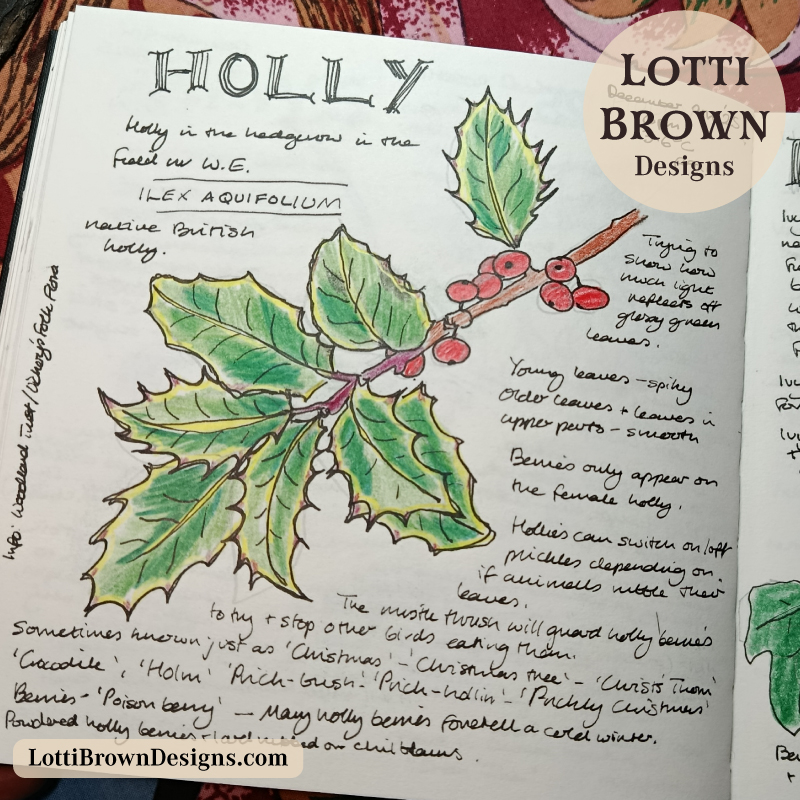 HOLLY
Holly in the hedgerow in the
field w W.E.
ILEX AQUIFOLIUM
native British
holly.
Trying to
show how
much light
reflects off
glossy green
leaves.
Young leaves - spiky
Older leaves + leaves in
upper parts - smooth
Berries only appear on
the female holly.
Hollies can switch on/off
prickles depending on
if animals nibble their
leaves.
The mistle thrush will guard holly berries
to try + stop other birds eating them.
Sometimes known just as 'Christmas' - 'Christmas tree' - 'Christ's Thorn'
'Crocodile', 'Holm' 'Prick-bush' - 'Prick-hollin' - 'Prickly Christmas'
Berries - 'Poison berry' - Many holly berries foretell a cold winter.
Powdered holly berries + lard rubbed on chilblains.
Info: Woodland Trust / Vickery's Folk Flora
December
LOTTI
BROWN
Designs
LottiBrownDesigns.com